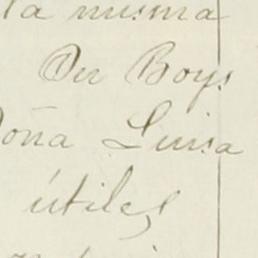 la misma
On Boys
Doña Luisa
útiles